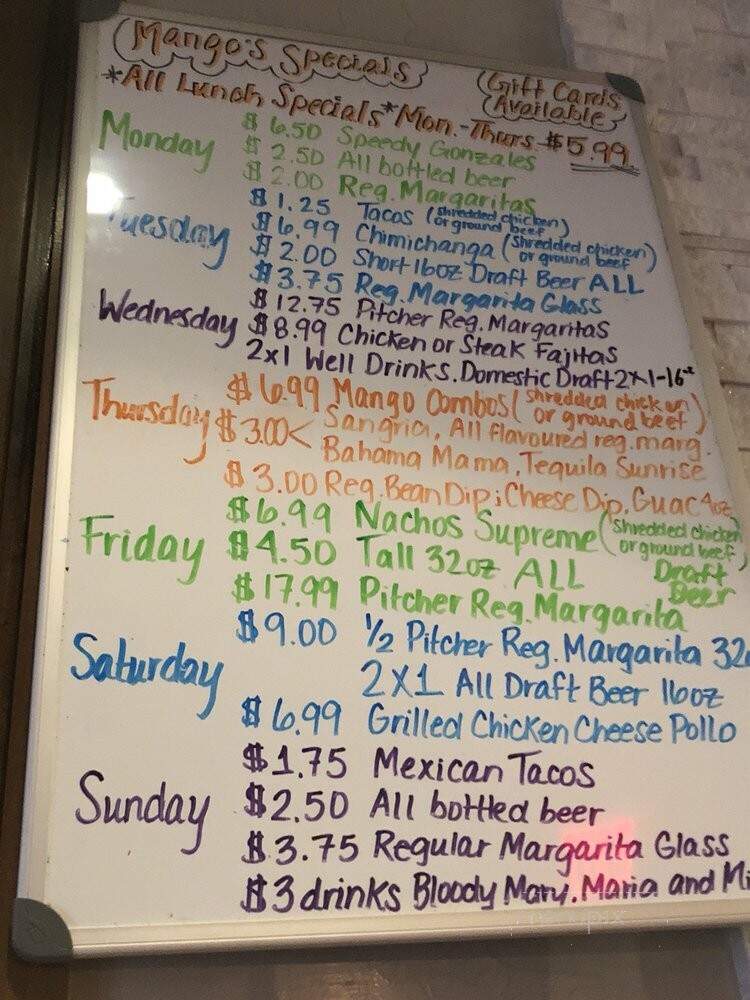 Mango's Specials
Gift Cards
Available
*All Lunch Specials*Mon.-Thurs. $5.99
Monday
$6.50 Speedy Gonzales
$2.50 All bottled beer
$2.00 Reg. Margaritas
Tuesday
$1.25 Tacos (shredded chicken) or ground beef
$6.99 Chimichanga (shredded chicken) or ground beef
$2.00 Short 16oz Draft Beer ALL
$3.75 Reg. Margarita Glass
Wednesday
$12.75 Pitcher Reg. Margaritas
$8.99 Chicken or Steak Fajitas
2x1 Well Drinks. Domestic Draft 2x1-16oz
Thursday
$6.99 Mango Combos (shredded chicken or ground beef)
$3.00< Sangria, All flavoured reg. marg.
Bahama Mama, Tequila Sunrise
$3.00 Reg. Bean Dip; Cheese Dip, Guac 4oz
Friday
$6.99 Nachos Supreme (shredded chicken or ground beef)
$4.50 Tall 32oz ALL Draft Beer
$17.99 Pitcher Reg. Margarita
Saturday
$9.00 1/2 Pitcher Reg. Margarita 32
2x1 All Draft Beer 16oz
$6.99 Grilled Chicken Cheese Pollo
Sunday
$1.75 Mexican Tacos
$2.50 All bottled beer
$3.75 Regular Margarita Glass
$3 drinks Bloody Mary. Maria and